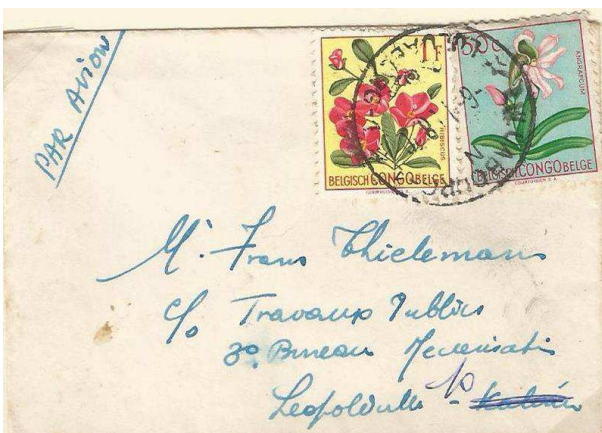 PAR AVION
1F
HIBISCUS
BELGISCH CONGO BELGE
ANGRAECUM
BELGISCH CONGO BELGE
Mr. Frans Thielemans
c/o Travaux Publics
3e Bureau
Leopoldville -